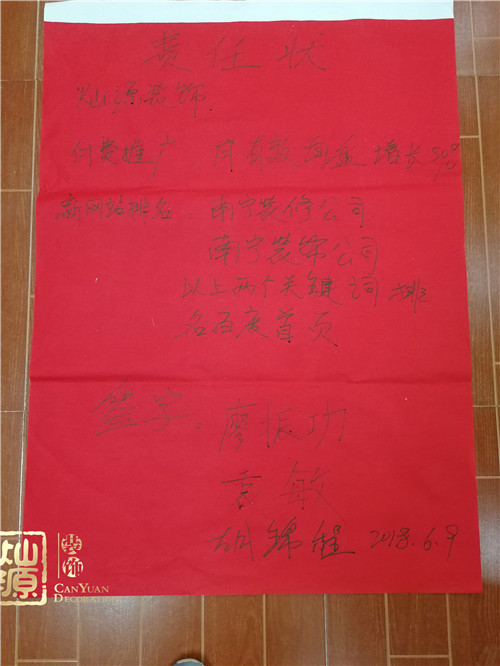 责任状
灿源装饰
付费推广 月有效询盘增长50%
新网站排名：南宁装修公司
南宁装饰公司
以上两个关键词排
名百度首页
签字：廖振功
袁敏
胡锦程 2018.6.9
灿源
装饰
CANYUAN
DECORATION